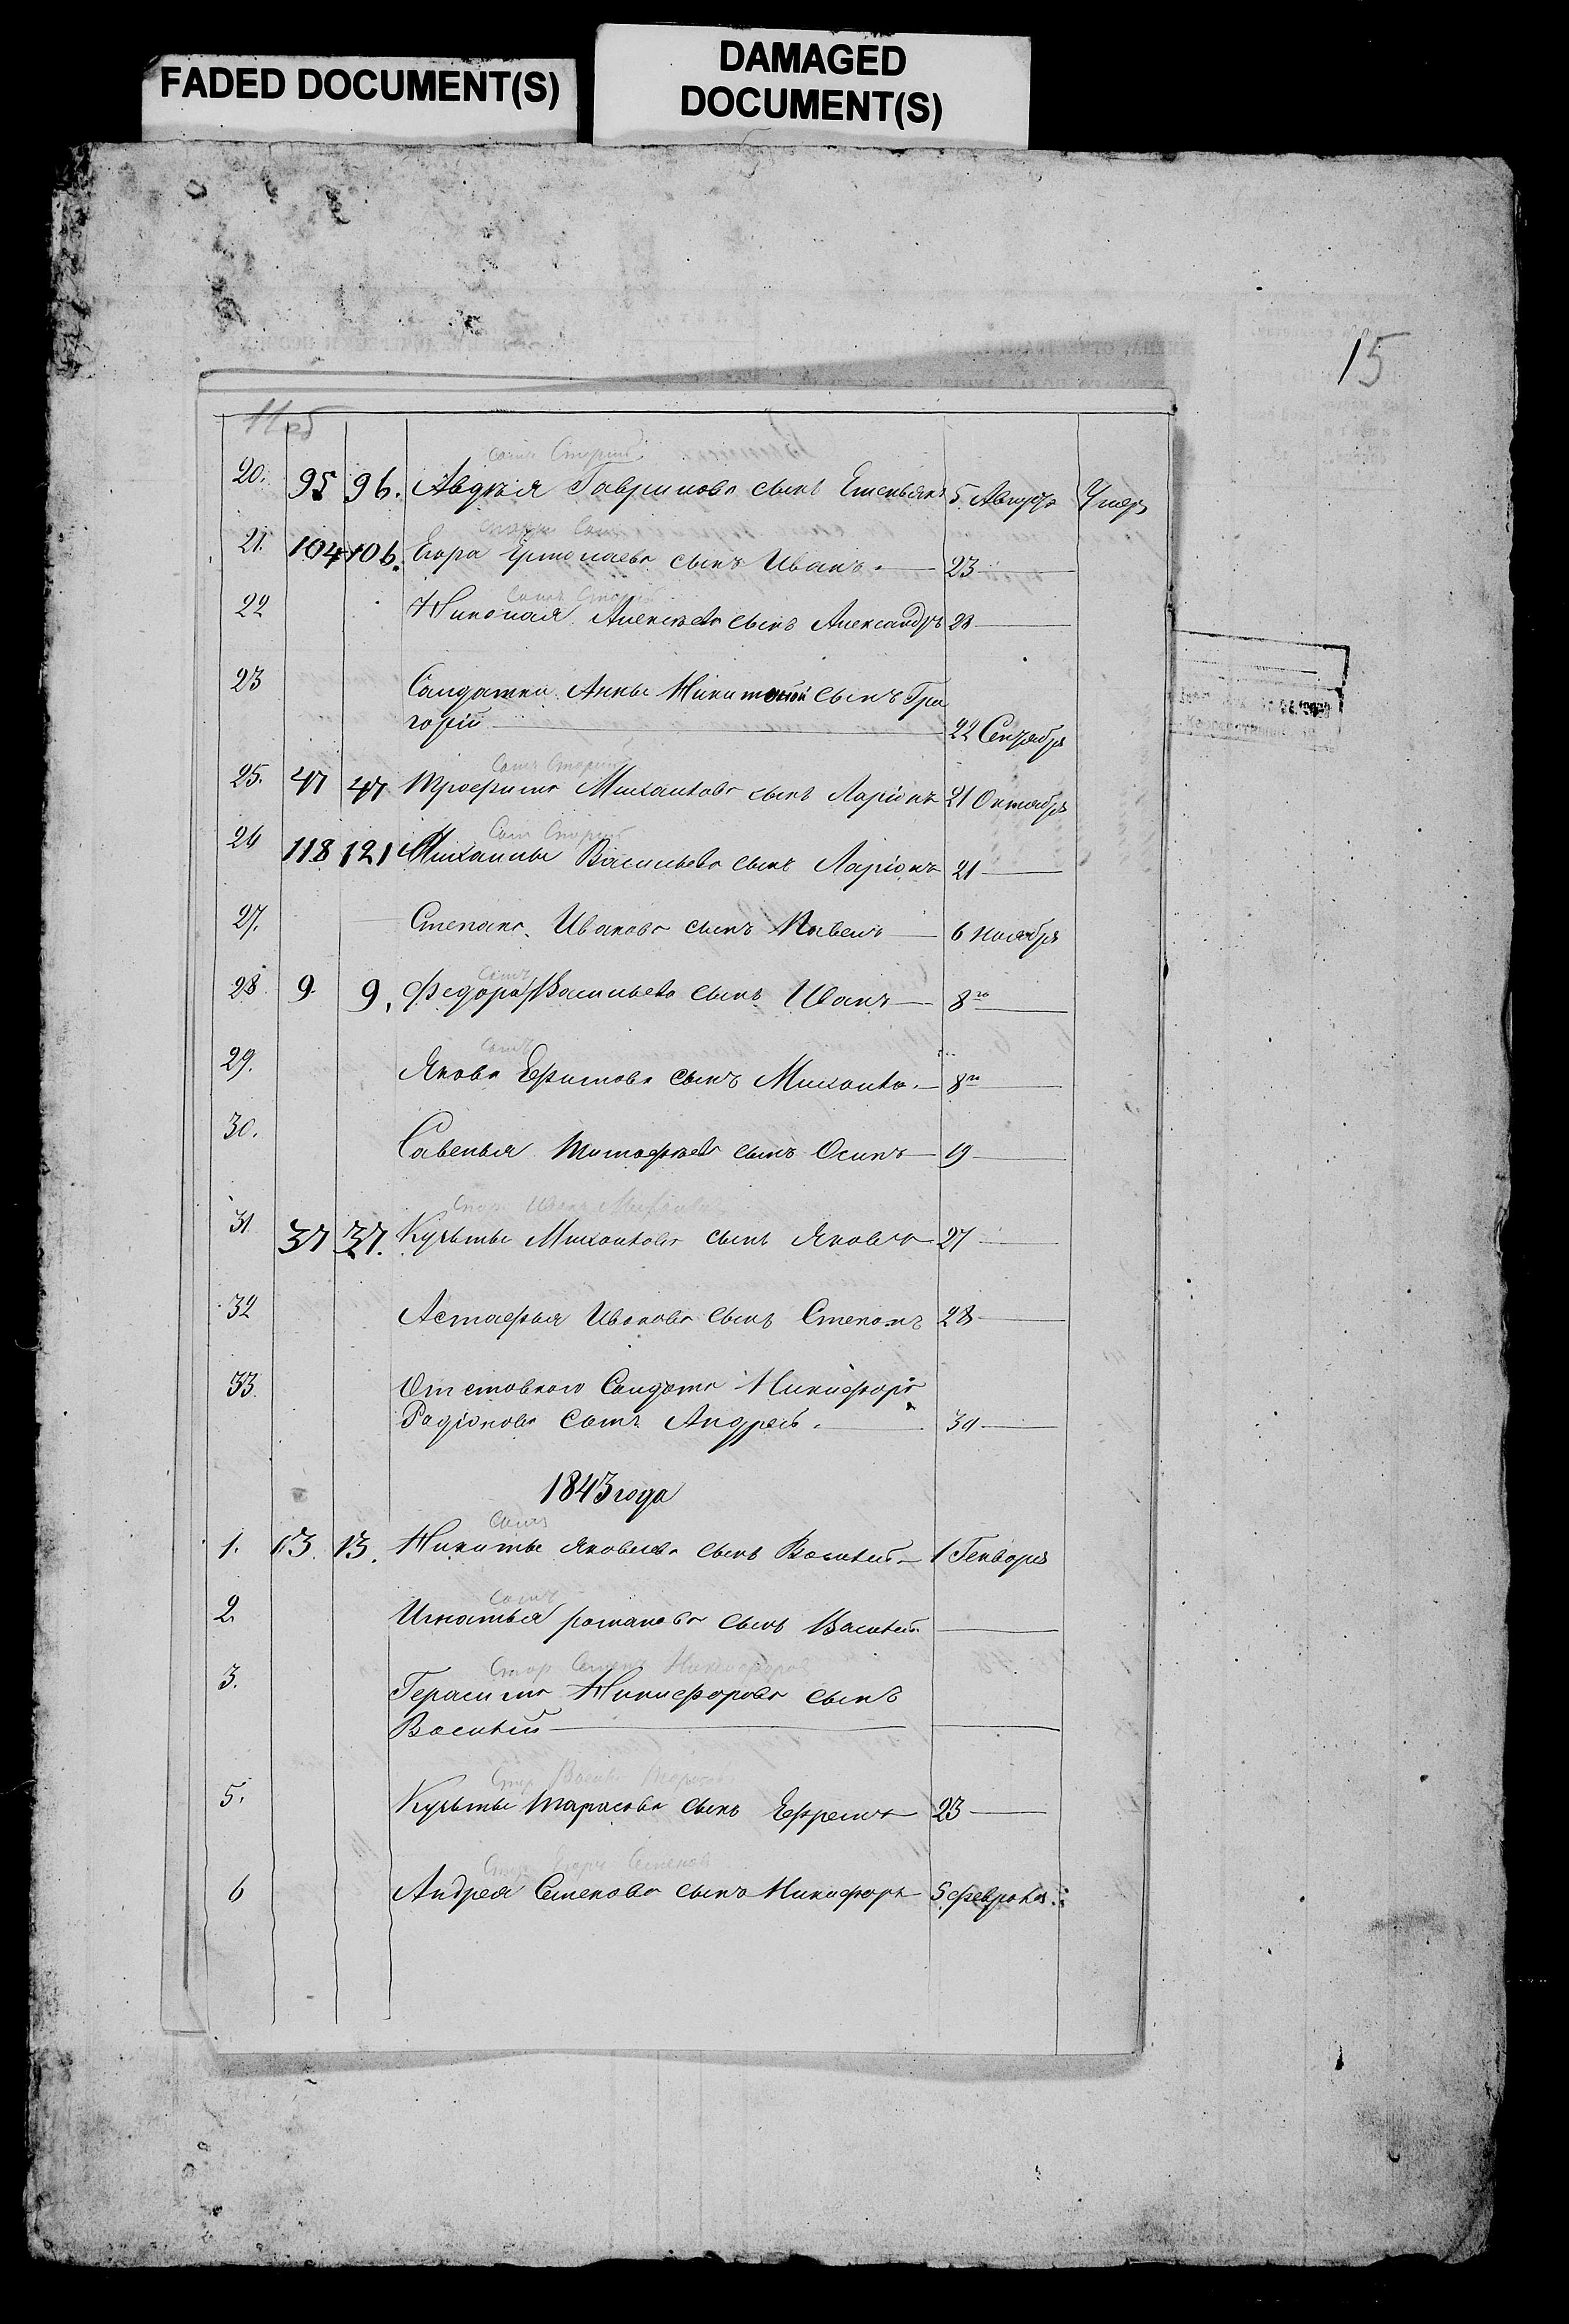 FADED DOCUMENT(S)
DAMAGED
DOCUMENT(S)
15
11 об
самъ Старшій
20. 95 96. Авдѣя Гаврилова сынъ Емельянъ 5 Августа Умеръ
21. 104 106. Егора Ермолаева сынъ Иванъ. 23
самъ Старшій
22 Николая Алексѣева сынъ Александръ 23
23 Салдатки Анны Никитиной сынъ Гри
горій 22 Сентября
Самъ Старшій
25. 47 47 Трофима Михайлова сынъ Ларіонъ 21 Октября
Самъ Старшій
26 118 121 Михаилы Васильева сынъ Ларіонъ 21
27. Степана Иванова сынъ Павелъ 6 Ноября
Самъ
28 9. 9. Федора Васильева сынъ Иванъ 8го
Самъ
29. Якова Ефимова сынъ Михайла. 8го
30. Савелья Тимофѣева сынъ Осипъ 19
Стар. Иванъ Михайловъ
31 37 37. Кузьмы Михайлова сынъ Яковъ 27
32 Астафья Иванова сынъ Степанъ 28
33. Отставного Салдата Никифора
Радіонова сынъ Андрей. 30
1843 года
Самъ
1. 13. 13. Никиты Яковлева сынъ Василій 1 Генваря
Самъ
2. Игнатья романова сынъ Василій
Стар Семенъ Никифоровъ
3. Герасима Никифорова сынъ
Василій
Стар Василій Тарасовъ
5. Кузьмы Тарасова сынъ Ефремъ 23
Стар Егоръ Семеновъ
6 Андрея Семенова сынъ Никифоръ 5 февраля